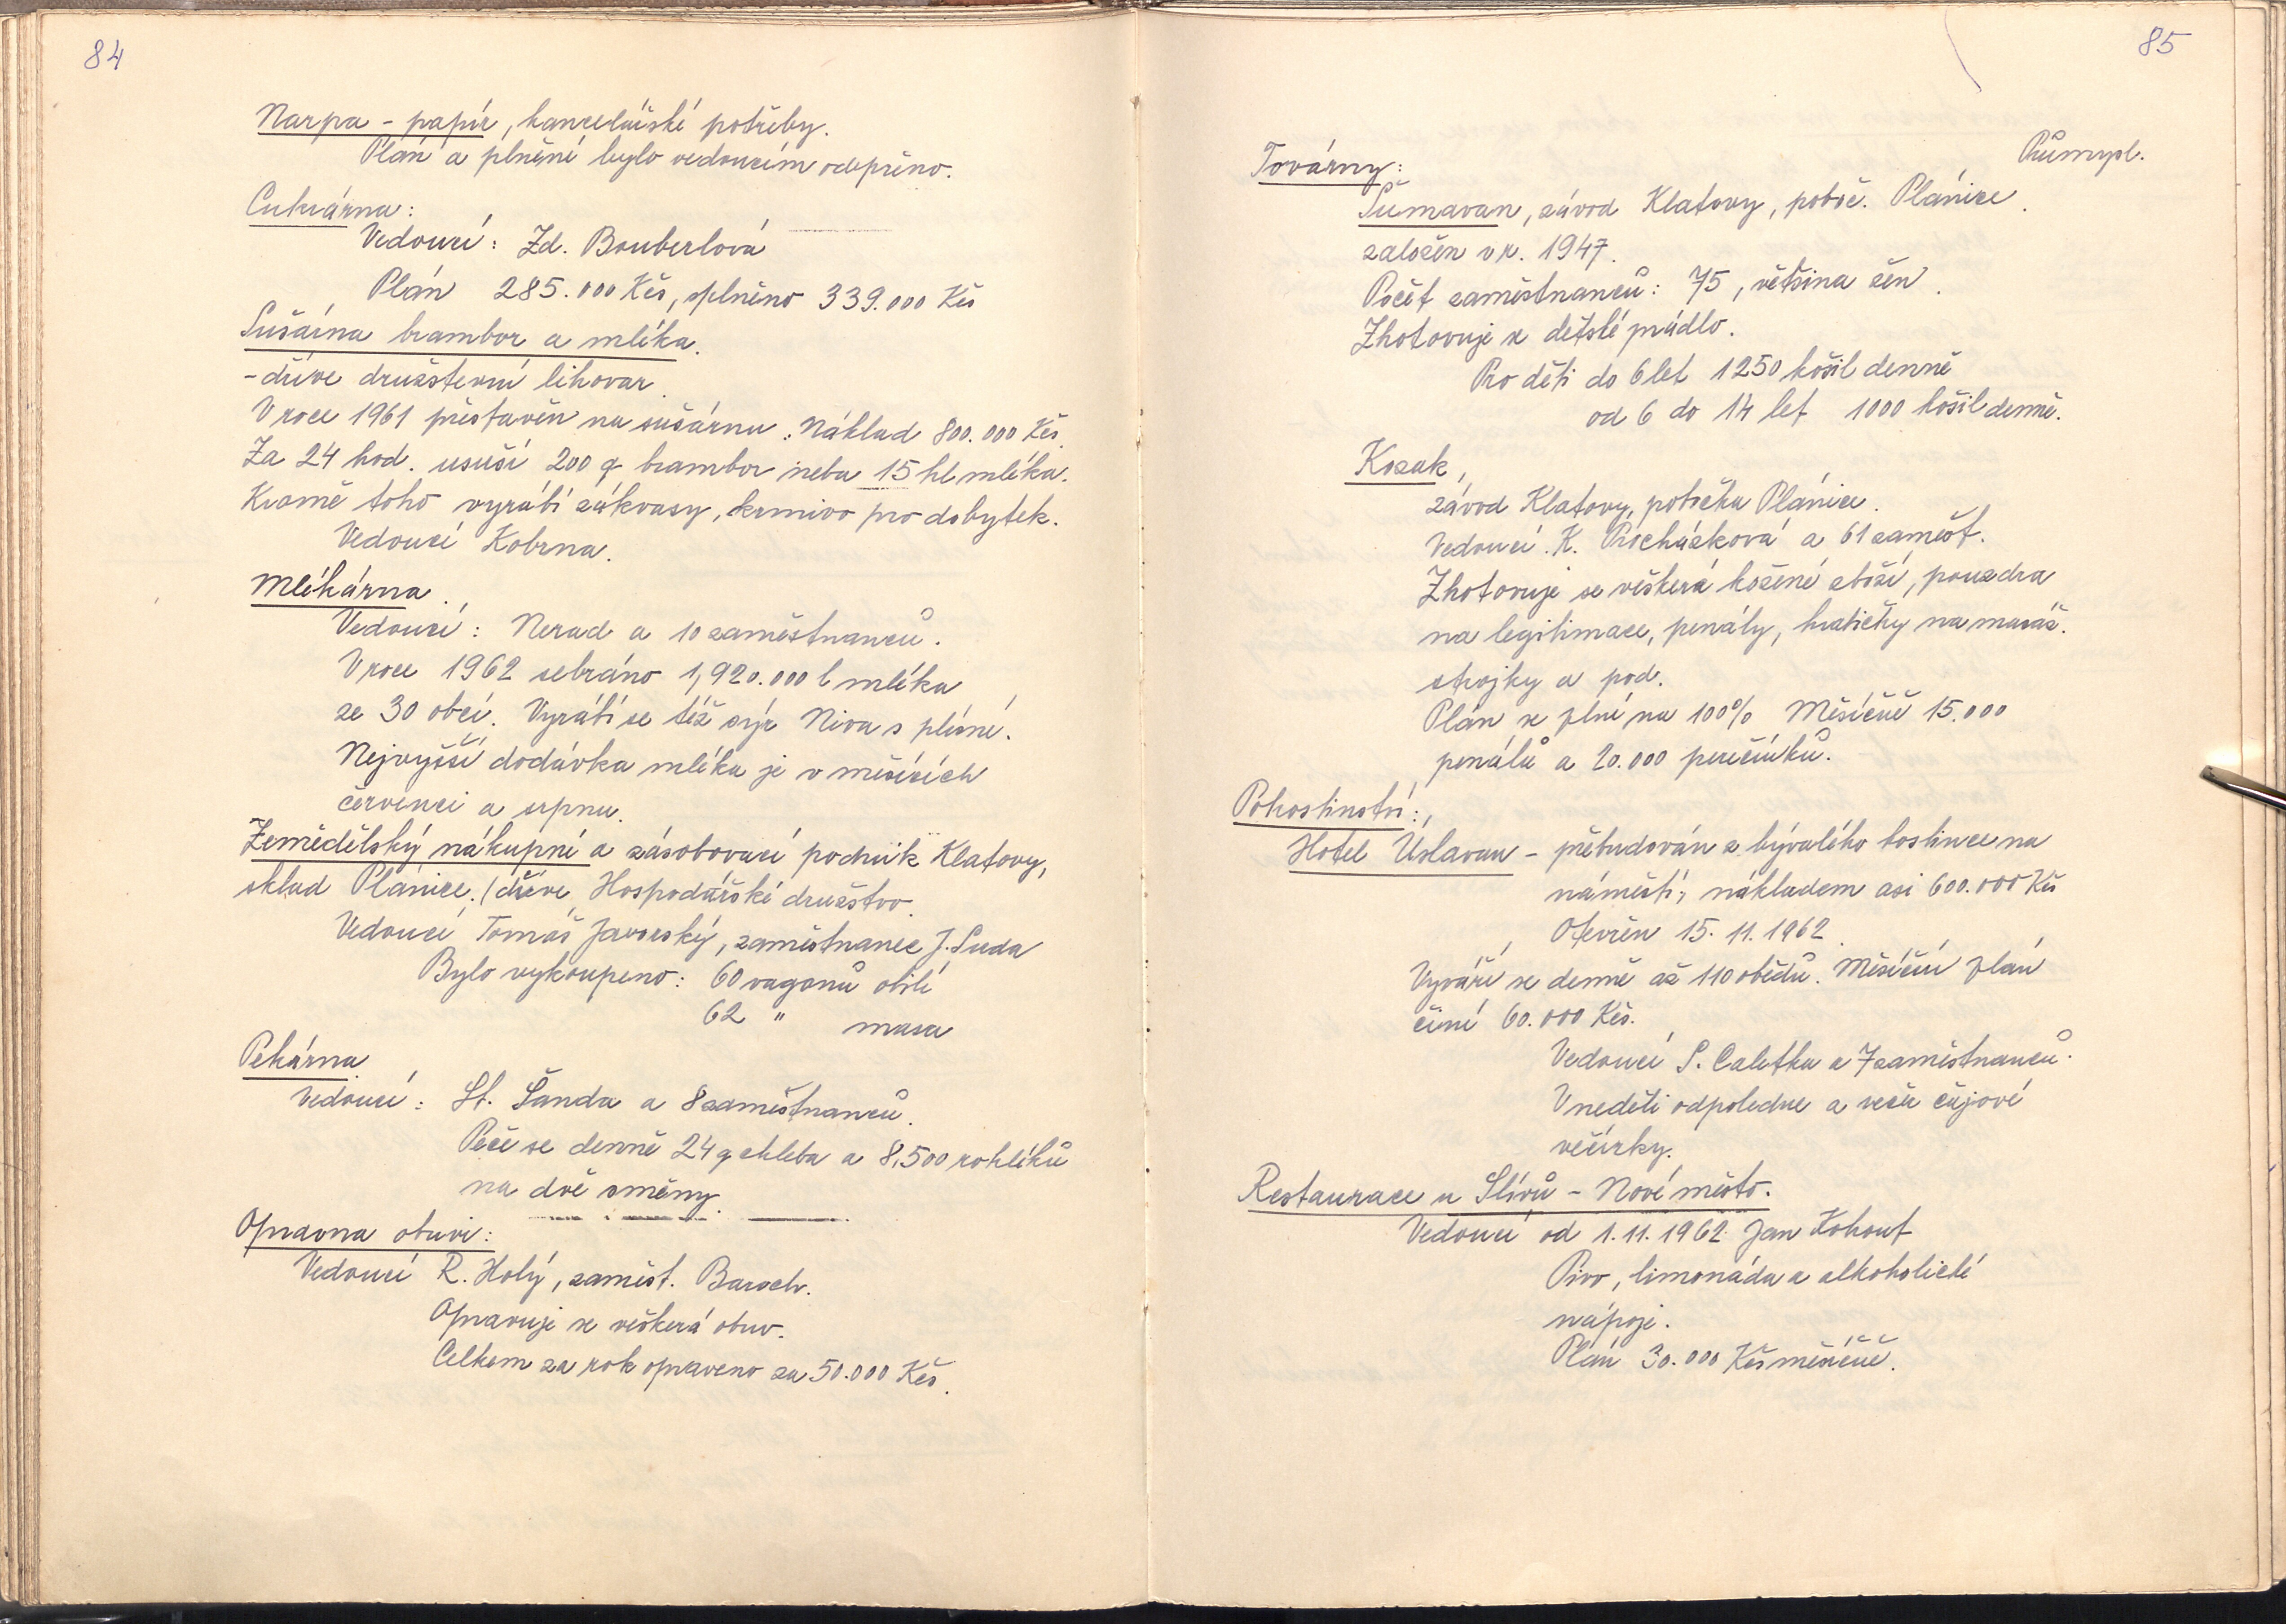 84
Narpa - papír, kancelářské potřeby.
Plán a plnění bylo vedoucím odepřeno.
Cukrárna:
Vedoucí: Zd. Bouberlová
Plán 285.000 Kčs, splněno 339.000 Kčs
Sušárna brambor a mléka.
- dříve družstevní lihovar.
V roce 1961 přestavěn na sušárnu. Náklad 800.000 Kčs.
Za 24 hod. usuší 200 q brambor nebo 15 hl mléka.
Kromě toho vyrábí zákvasy, krmivo pro dobytek.
Vedoucí Kobrna.
Mlékárna.
Vedoucí: Nerad a 10 zaměstnanců.
V roce 1962 sebráno 1,920.000 l mléka
ze 30 obcí. Vyrábí se též sýr Niva s plísní.
Nejvyšší dodávka mléka je v měsících
červenci a srpnu.
Zemědělský nákupní a zásobovací podnik Klatovy,
sklad Plánice. (dříve Hospodářské družstvo.
Vedoucí Tomáš Javorský, zaměstnanec J. Suda
Bylo vykoupeno: 60 vagonů obilí
62 " masa
Pekárna
Vedoucí: St. Šanda a 8 zaměstnanců.
Peče se denně 24 q chleba a 8,500 rohlíků
na dvě směny.
Opravna obuvi:
Vedoucí R. Holý, zaměst. Baroch.
Opravuje se veškerá obuv.
Celkem za rok opraveno za 50.000 Kčs.
85
Průmysl.
Továrny:
Šumavan, závod Klatovy, poboč. Plánice.
založen v r. 1947.
Počet zaměstnanců: 75, většina žen.
Zhotovuje se dětské prádlo.
Pro děti do 6 let 1250 košil denně
od 6 do 14 let 1000 košil denně.
Kozak,
závod Klatovy, pobočka Plánice.
Vedoucí K. Procházková a 61 zaměst.
Zhotovuje se veškerá kožené zboží, pouzdra
na legitimace, penály, krabičky na masáž.
strojky a pod.
Plán se plní na 100% Měsíčně 15.000
penálů a 20.000 peřečníků.
Pohostinství:,
Hotel Úslavan - přebudován z bývalého hostince na
náměstí, nákladem asi 600.000 Kčs
Otevřen 15. 11. 1962.
Vyváří se denně až 110 obědů. Měsíční plán
činí 60.000 Kčs.
Vedoucí S. Caletka a 7 zaměstnanců.
V neděli odpoledne a večer čajové
večírky.
Restaurace u Slívů - Nové město.
Vedoucí od 1. 11. 1962 Jan Kohout
Pivo, limonáda a alkoholické
nápoje.
Plán 30.000 Kčs měsíčně.